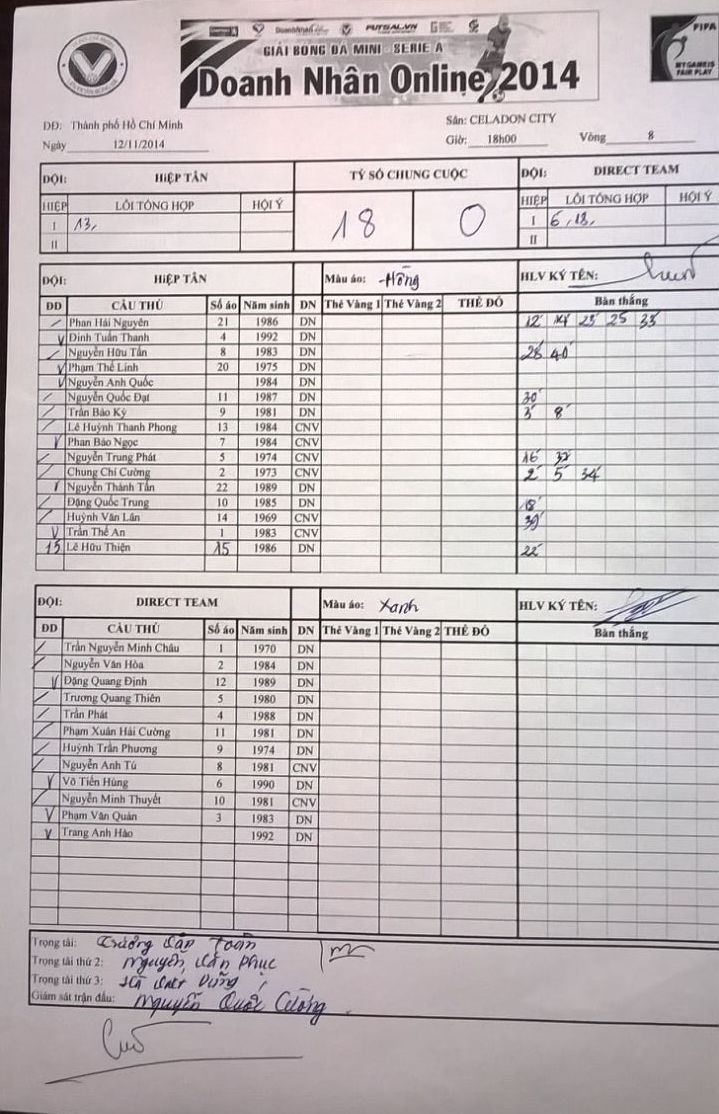 FUTSAL.VN
FIFA
MY GAME IS
FAIR PLAY
GIẢI BÓNG ĐÁ MINI - SERIE A
Doanh Nhân Online 2014
DĐ: Thành phố Hồ Chí Minh
Sân: CELADON CITY
Ngày 12/11/2014
Giờ: 18h00 Vòng 8
ĐỘI: HIỆP TÂN TỶ SỐ CHUNG CUỘC ĐỘI: DIRECT TEAM
HIỆP LỖI TỔNG HỢP HỘI Ý 18 0 HIỆP LỖI TỔNG HỢP HỘI Ý
I 13, I 6, 18,
II II
ĐỘI: HIỆP TÂN Màu áo: Hồng HLV KÝ TÊN:
DD CẦU THỦ Số áo Năm sinh DN Thẻ Vàng 1 Thẻ Vàng 2 THẺ ĐỎ Bàn thắng
Phan Hải Nguyên 21 1986 DN 12 14 23 25 33
Đinh Tuấn Thanh 4 1992 DN
Nguyễn Hữu Tấn 8 1983 DN 28 40
Phạm Thế Linh 20 1975 DN
Nguyễn Anh Quốc 1984 DN
Nguyễn Quốc Đạt 11 1987 DN 30
Trần Bảo Kỳ 9 1981 DN 3 8
Lê Huỳnh Thanh Phong 13 1984 CNV
Phan Bảo Ngọc 7 1984 CNV
Nguyễn Trung Phát 5 1974 CNV 16 32
Chung Chí Cường 2 1973 CNV 2 5 34
Nguyễn Thành Tấn 22 1989 DN
Đặng Quốc Trung 10 1985 DN 18
Huỳnh Văn Lân 14 1969 CNV 39
Trần Thế An 1 1983 CNV
15 Lê Hữu Thiện 15 1986 DN 22
ĐỘI: DIRECT TEAM Màu áo: Xanh HLV KÝ TÊN:
DD CẦU THỦ Số áo Năm sinh DN Thẻ Vàng 1 Thẻ Vàng 2 THẺ ĐỎ Bàn thắng
Trần Nguyễn Minh Châu 1 1970 DN
Nguyễn Văn Hòa 2 1984 DN
Đặng Quang Định 12 1989 DN
Trương Quang Thiên 5 1980 DN
Trần Phát 4 1988 DN
Phạm Xuân Hải Cường 11 1981 DN
Huỳnh Trần Phương 9 1974 DN
Nguyễn Anh Tú 8 1981 CNV
Võ Tiến Hùng 6 1990 DN
Nguyễn Minh Thuyết 10 1981 CNV
Phạm Văn Quản 3 1983 DN
Trang Anh Hào 1992 DN
Trọng tài: Trương Văn Toàn
Trọng tài thứ 2: Nguyễn Văn Phục
Trọng tài thứ 3: Dũng
Giám sát trận đấu: Nguyễn Quốc Cường